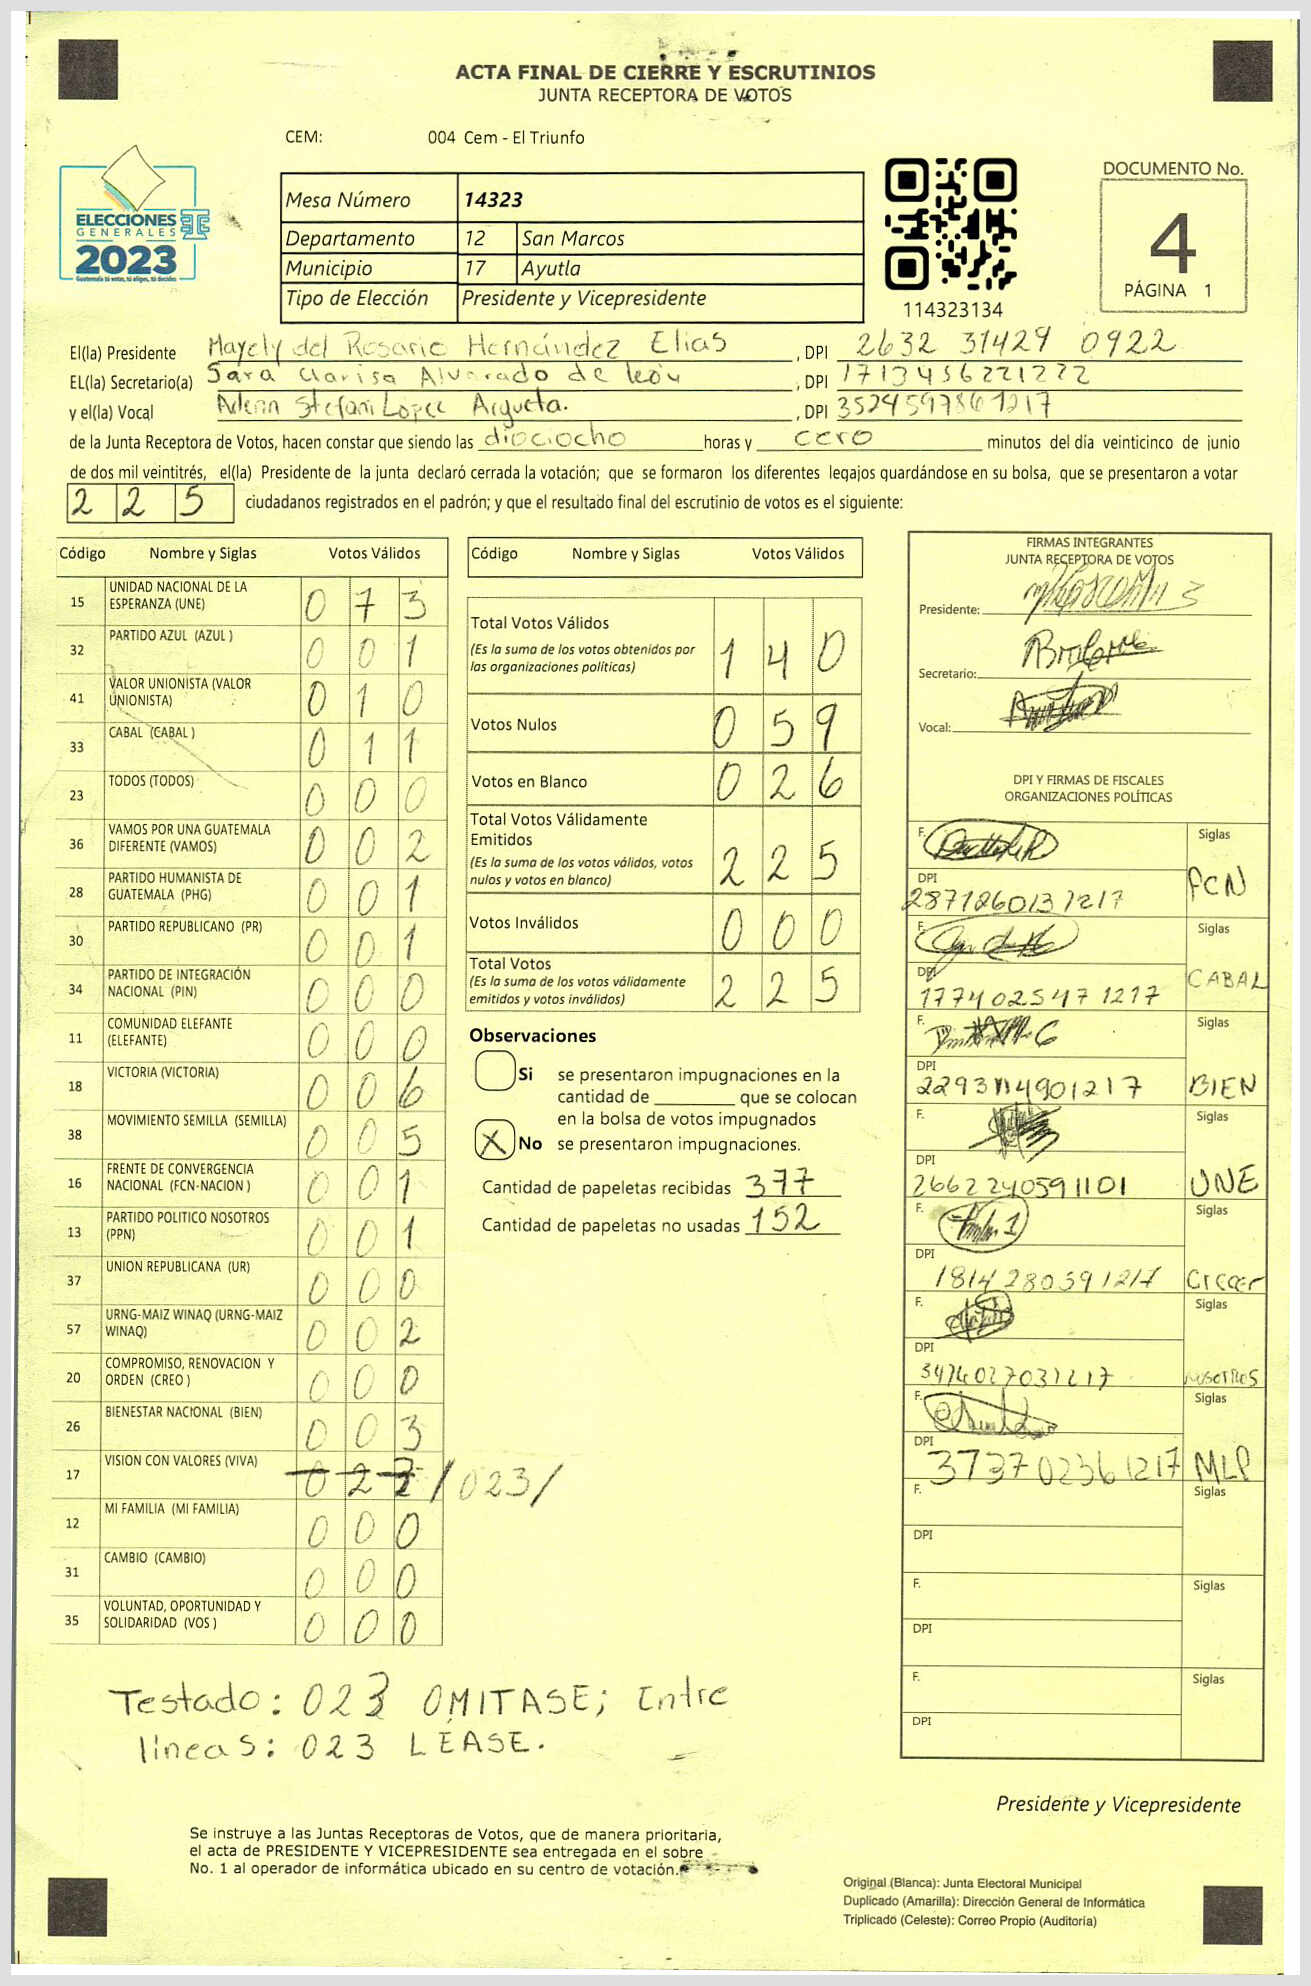 ACTA FINAL DE CIERRE Y ESCRUTINIOS
JUNTA RECEPTORA DE VOTOS
CEM: 004 Cem - El Triunfo
DOCUMENTO No.
4
PÁGINA 1
ELECCIONES
GENERALES
2023
Guatemala tú votas, tú eliges, tú decides
Mesa Número 14323
Departamento 12 San Marcos
Municipio 17 Ayutla
Tipo de Elección Presidente y Vicepresidente
114323134
El(la) Presidente Mayely del Rosario Hernández Elias, DPI 2632 31429 0922
EL(la) Secretario(a) Sara Clarisa Alvarado de león, DPI 1713456221222
y el(la) Vocal Stefani López Argueta., DPI
de la Junta Receptora de Votos, hacen constar que siendo las diociocho horas y cero minutos del día veinticinco de junio
de dos mil veintitrés, el(la) Presidente de la junta declaró cerrada la votación; que se formaron los diferentes legajos quardándose en su bolsa, que se presentaron a votar
225 ciudadanos registrados en el padrón; y que el resultado final del escrutinio de votos es el siguiente:
Código Nombre y Siglas Votos Válidos
15 UNIDAD NACIONAL DE LA ESPERANZA (UNE) 073
32 PARTIDO AZUL (AZUL ) 001
41 VALOR UNIONISTA (VALOR UNIONISTA) 010
33 CABAL (CABAL ) 011
23 TODOS (TODOS) 000
36 VAMOS POR UNA GUATEMALA DIFERENTE (VAMOS) 002
28 PARTIDO HUMANISTA DE GUATEMALA (PHG) 001
30 PARTIDO REPUBLICANO (PR) 001
34 PARTIDO DE INTEGRACIÓN NACIONAL (PIN) 000
11 COMUNIDAD ELEFANTE (ELEFANTE) 000
18 VICTORIA (VICTORIA) 006
38 MOVIMIENTO SEMILLA (SEMILLA) 005
16 FRENTE DE CONVERGENCIA NACIONAL (FCN-NACION ) 001
13 PARTIDO POLITICO NOSOTROS (PPN) 001
37 UNION REPUBLICANA (UR) 000
57 URNG-MAIZ WINAQ (URNG-MAIZ WINAQ) 002
20 COMPROMISO, RENOVACION Y ORDEN (CREO ) 000
26 BIENESTAR NACIONAL (BIEN) 003
17 VISION CON VALORES (VIVA) 023 /023/
12 MI FAMILIA (MI FAMILIA) 000
31 CAMBIO (CAMBIO) 000
35 VOLUNTAD, OPORTUNIDAD Y SOLIDARIDAD (VOS ) 000
Código Nombre y Siglas Votos Válidos
Total Votos Válidos 140
(Es la suma de los votos obtenidos por
las organizaciones políticas)
Votos Nulos 059
Votos en Blanco 026
Total Votos Válidamente
Emitidos 225
(Es la suma de los votos válidos, votos
nulos y votos en blanco)
Votos Inválidos 000
Total Votos 225
(Es la suma de los votos válidamente
emitidos y votos inválidos)
Observaciones
Si se presentaron impugnaciones en la
cantidad de ________ que se colocan
en la bolsa de votos impugnados
X No se presentaron impugnaciones.
Cantidad de papeletas recibidas 377
Cantidad de papeletas no usadas 152
FIRMAS INTEGRANTES
JUNTA RECEPTORA DE VOTOS
Presidente:
Secretario:
Vocal:
DPI Y FIRMAS DE FISCALES
ORGANIZACIONES POLÍTICAS
F. Siglas
DPI 2871260131217 FCN
F. Siglas
DPI 1774025471217 CABAL
F. Siglas
DPI BIEN
F. Siglas
DPI 2662240591101 UNE
F. Siglas
DPI 1814280391217 Creer
F. Siglas
DPI 3474027031217 NOSOTROS
F. Siglas
DPI 373702361217 MLP
F. Siglas
DPI
F. Siglas
DPI
F. Siglas
DPI
Testado: 023 OMITASE; Entre
lineas: 023 LÉASE.
Presidente y Vicepresidente
Se instruye a las Juntas Receptoras de Votos, que de manera prioritaria,
el acta de PRESIDENTE Y VICEPRESIDENTE sea entregada en el sobre
No. 1 al operador de informática ubicado en su centro de votación.
Original (Blanca): Junta Electoral Municipal
Duplicado (Amarilla): Dirección General de Informática
Triplicado (Celeste): Correo Propio (Auditoría)